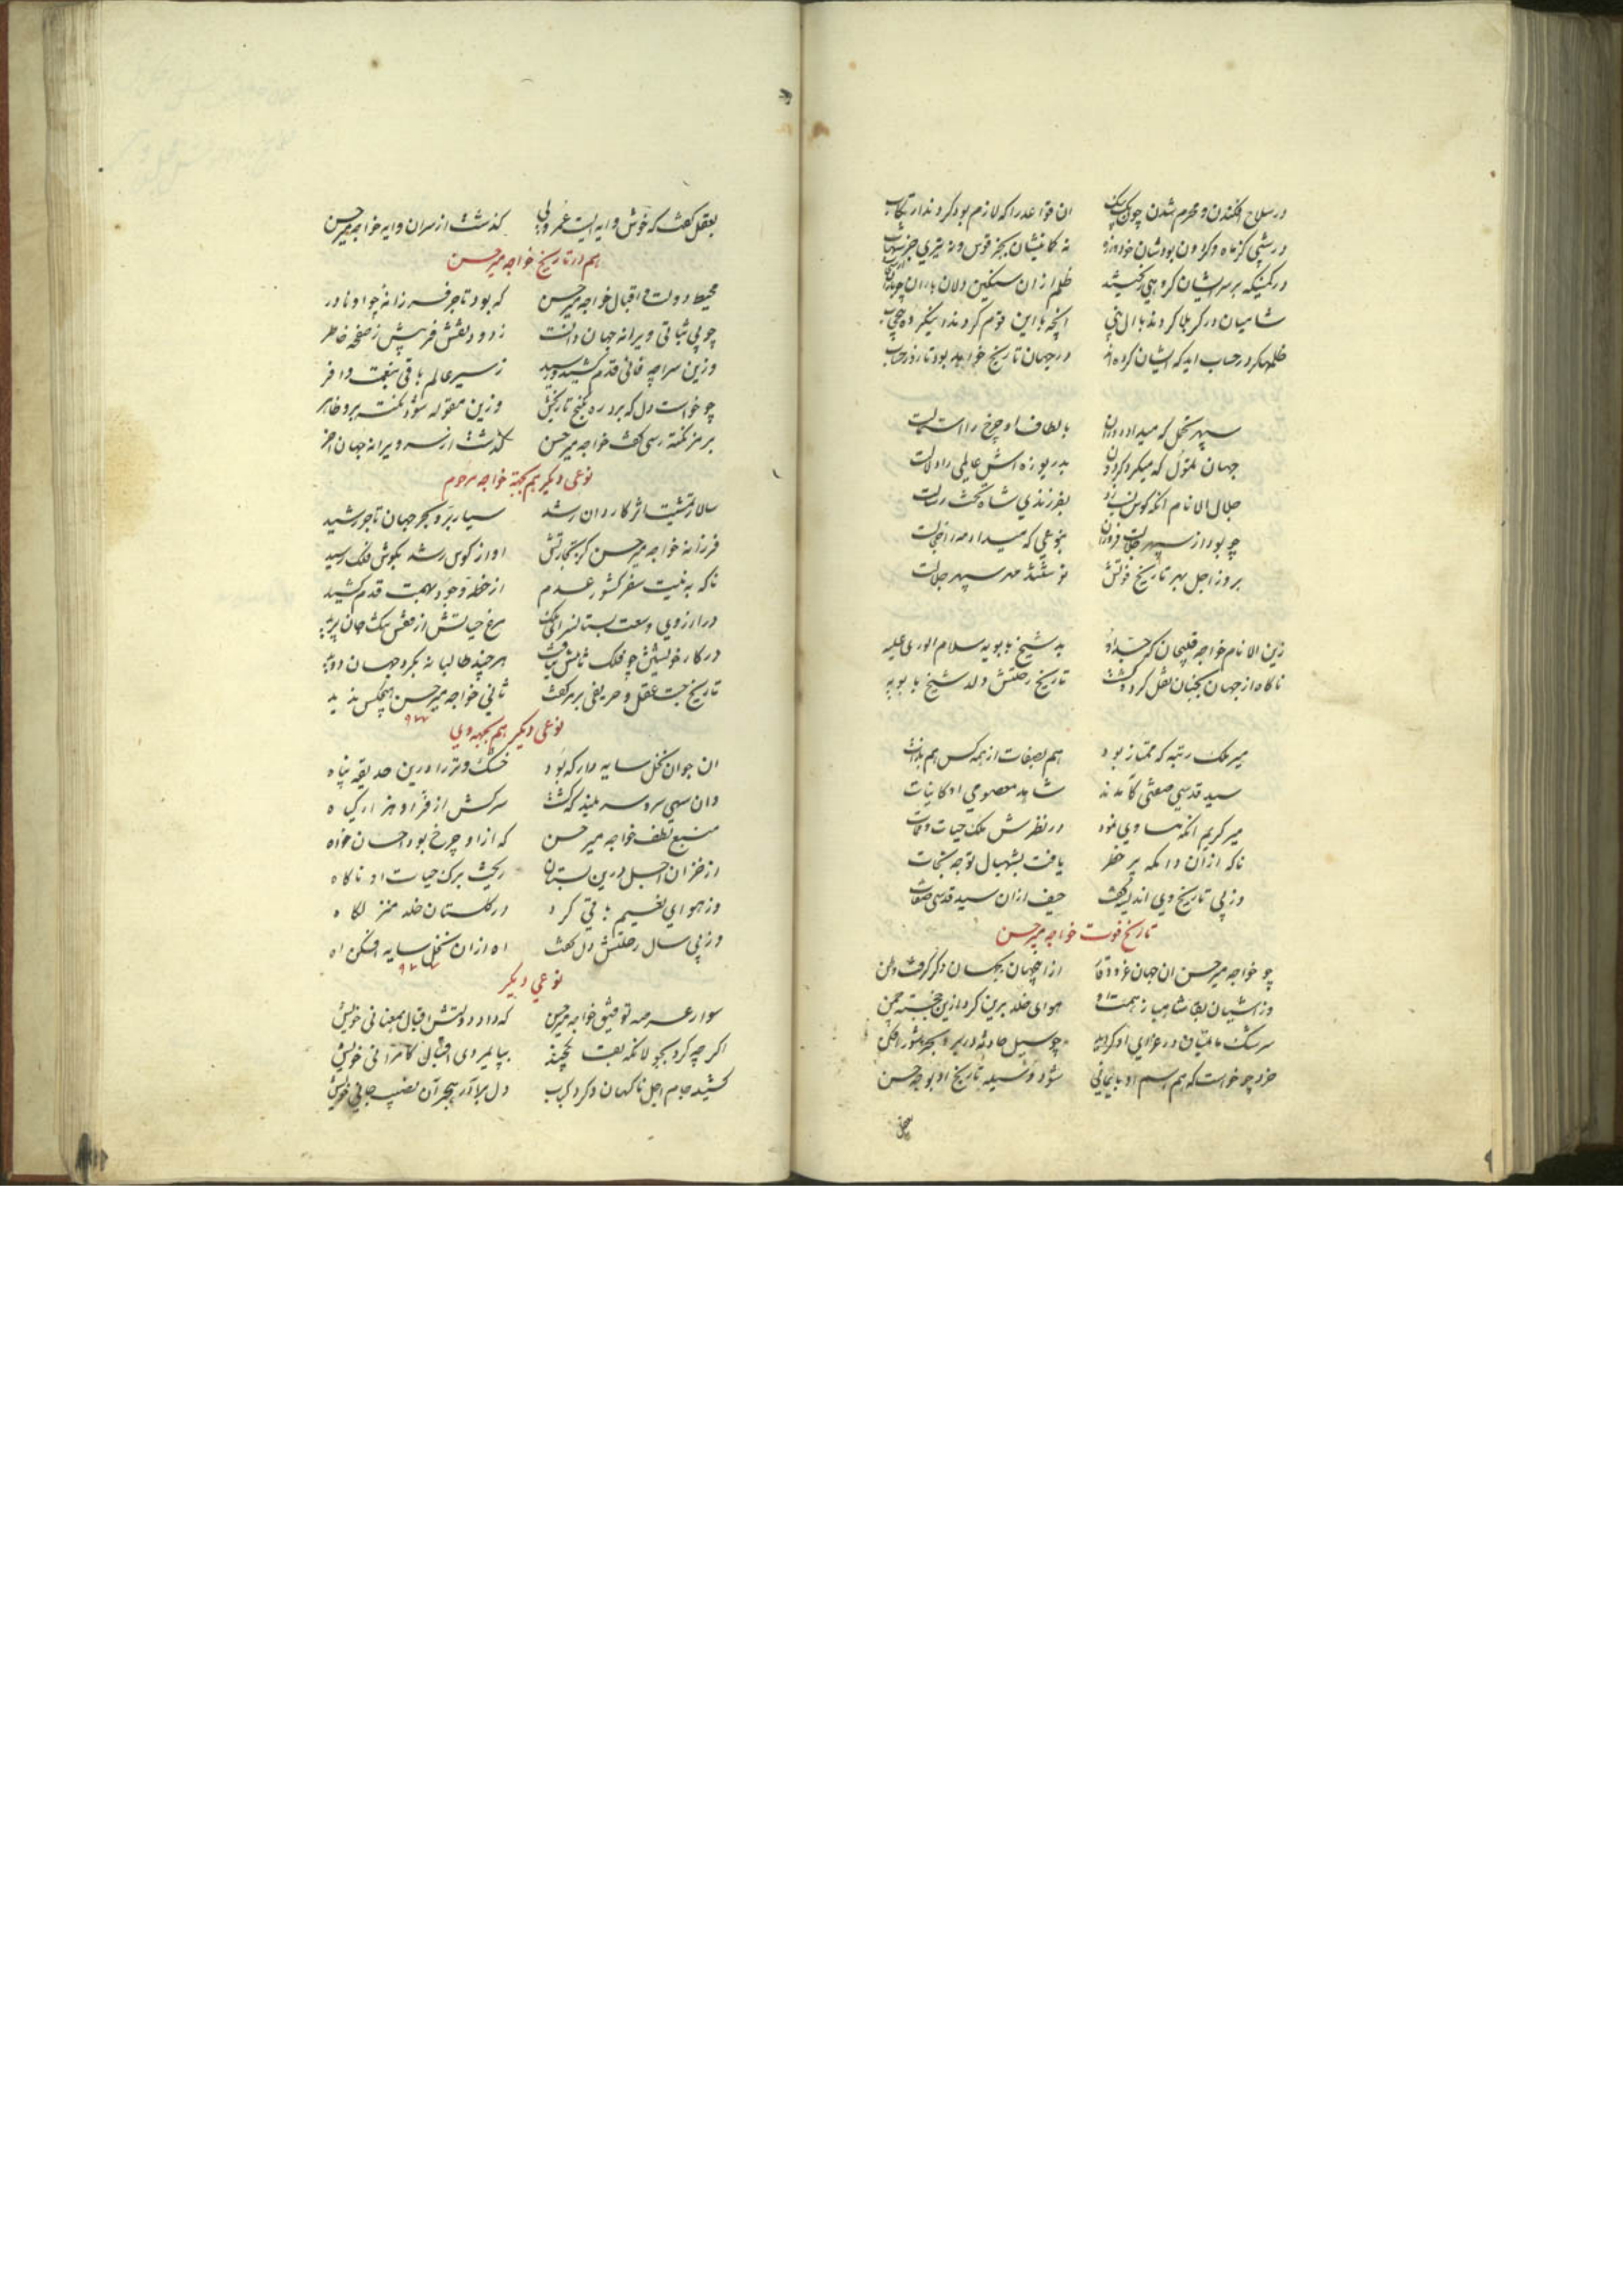 در سلاح افکندن و محرم شدن چون ان قواعد را که لازم بود کردند ارتکاب
در شبی کز ماه و کردون بودشان خود و زره نه کمانیشان بجز قوس و نه تیری جز شهاب
در کمینکه بر سر ایشان کروهی ریختند ظلم از ان سنکین دلان باران چو باران
شامیان در کربلا کردند با ال نبی انچه با این قوم کردند
در حساب اید که ایشان کرده اند در جهان تاریخ خواهد بود تا روز حساب
سپهر تجمل که میداد دوران بالطاف او چرخ را استمالت
جهان تمول که میکرد کردون بدریوزه اش عالمی را دلالت
جلال الانام انکه کوس نسب زد بفرزندی شاه تخت رسالت
چو بود از سپهر جلالت فروزان بنوعی که میداد مه را خجالت
بروز اجل بهر تاریخ فوتش نوشتند مهر سپهر جلالت
زین الانام خواجه که جد او بد شیخ بابویه سلام الوری علیه
ناکاه از جهان بجنان نقل کرد و کشت تاریخ رحلتش ولد شیخ بابویه
میر ملک رتبه که ممتاز بود هم بصفات از همه کس هم بذات
سید قدسی صفتی کامدند شاهد معصومی او کاینات
میر کریم انکه مساوی نمود در نظرش ملک حیات و وفات
ناکه ازان دامکه پر خطر یافت بشهبال توجه نجات
وز پی تاریخ وی اندیشه کفت حیف ازان سید قدسی صفات
تاریخ فوت خواجه میر حسن
چو خواجه میر حسن ان جهان عز و وقار ازین جهان بجهان دکر کرفت وطن
وز اشیان بقا شاهباز همت او هوای خلد برین کرد ازین خجسته چمن
سرشک ماتمیان در عزای او کردید چو سیل حادثه در بر و بحر شور افکن
خرد چو خواست که هم اسم او بایمایی شود وسیله تاریخ او بوجه حسن
بعقل
بعقل کفت که خوش وایه ایست عمر ولی کذشت از سران وایه خواجه میر حسن
هم در تاریخ خواجه میر حسن
محیط دولت و اقبال خواجه میر حسن که بود تاجر فرزانه جواد نادر
چو بی ثباتی ویرانه جهان دانست زدود نقش فریبش ز صفحه خاطر
وزین سراچه فانی قدم کشید و رسید ز سیر عالم باقی بنعمت وافر
چو خواست دل که برد ره بکنج تاریخش وزین مقوله شود نکته برو ظاهر
برمز نکته رسی کفت خواجه میر حسن کذشت از سر ویرانه جهان اخر
نوعی دیکر هم بجهة خواجه مرحوم
سالار تمشیت اثر کاردان رشد سیار بر و بحر جهان تاجر رشید
فرزانه خواجه میر حسن کز تجارتش اواز کوس رشد بکوش فلک رسید
ناکه به نیت سفر کشور عدم از خطه وجود بهمت قدم کشید
در ارزوی وسعت بستانسرای مرغ حیاتش از قفس تنک جان پرید
در کار خویشتن چو فلک ثابتش نیافت هر چند طالبانه بکرد جهان دوید
تاریخ جست عقل و حریفی برمز کفت ثانی خواجه میر حسن هیچکس ندید
۹۷۷
نوعی دیکر هم بجهه وی
ان جوان نخل سایه دار که بود خشک و تر را درین حدیقه پناه
وان سهی سرو سربلند که کشت سرکش از فر او هزار کیاه
منبع لطف خواجه میر حسن که ازو چرخ بود احسان خواه
از خزان اجل درین بستان ریخت برک حیات او ناکاه
وز هوای نعیم باقی کرد در کلستان خلد منزلکاه
وز پی سال رحلتش دل کفت اه ازان نخل سایه افکن اه
۹۷۷
نوعی دیکر
سوار عرصه توفیق خواجه میر حسن که داد دولتش اقبال همعنانی خویش
بپایمردی اقبال کامرانی خویش
کشید جام اجل ناکهان و کرد کباب دل برادر هجران نصیب جانی خویش